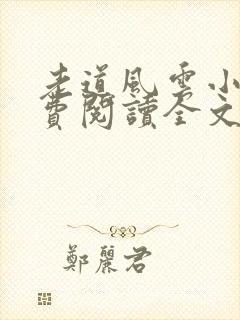 走道風雲小
費閱讀全文
鄭麗君